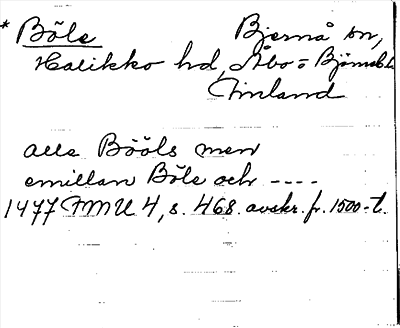 * Böle Bjernå sn,
Halikko hd, Åbo = Björneb. l.
Finland
alle Bööls men
emillan Böle och ----
1477 FMU 4, s. 468. avskr. fr. 1500-t.